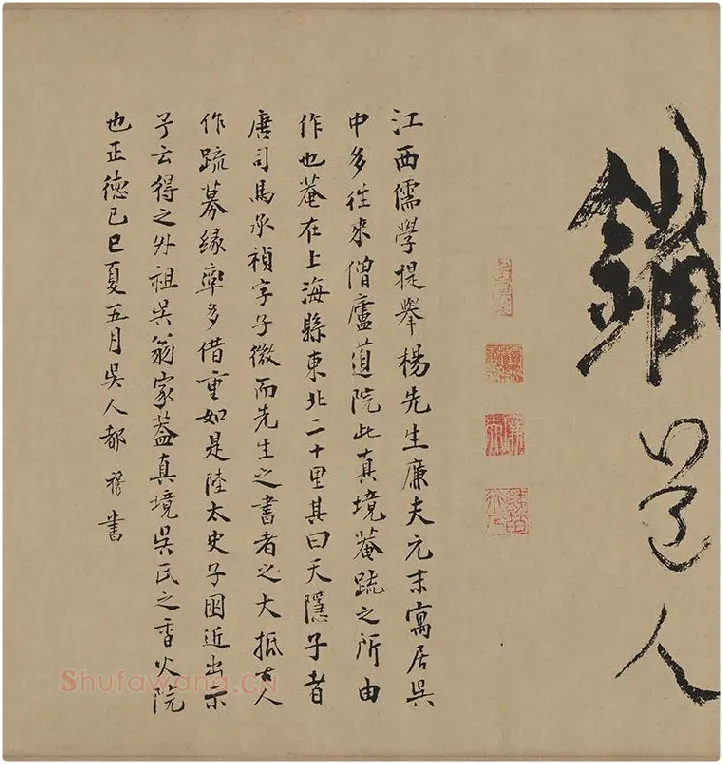 鐵道人
江西儒學提舉楊先生廉夫元末寓居吳
中多往来僧廬道院此真境菴疏之所由
作也菴在上海縣東北二十里其曰天隱子者
唐司馬承禎字子微而先生之書者之大抵古人
作疏募緣率多借重如是陸太史子困近出示
予云得之外祖吳翁家蓋真境吳氏之香火院
也正德己巳夏五月吳人都穆書
Shufawang.CN